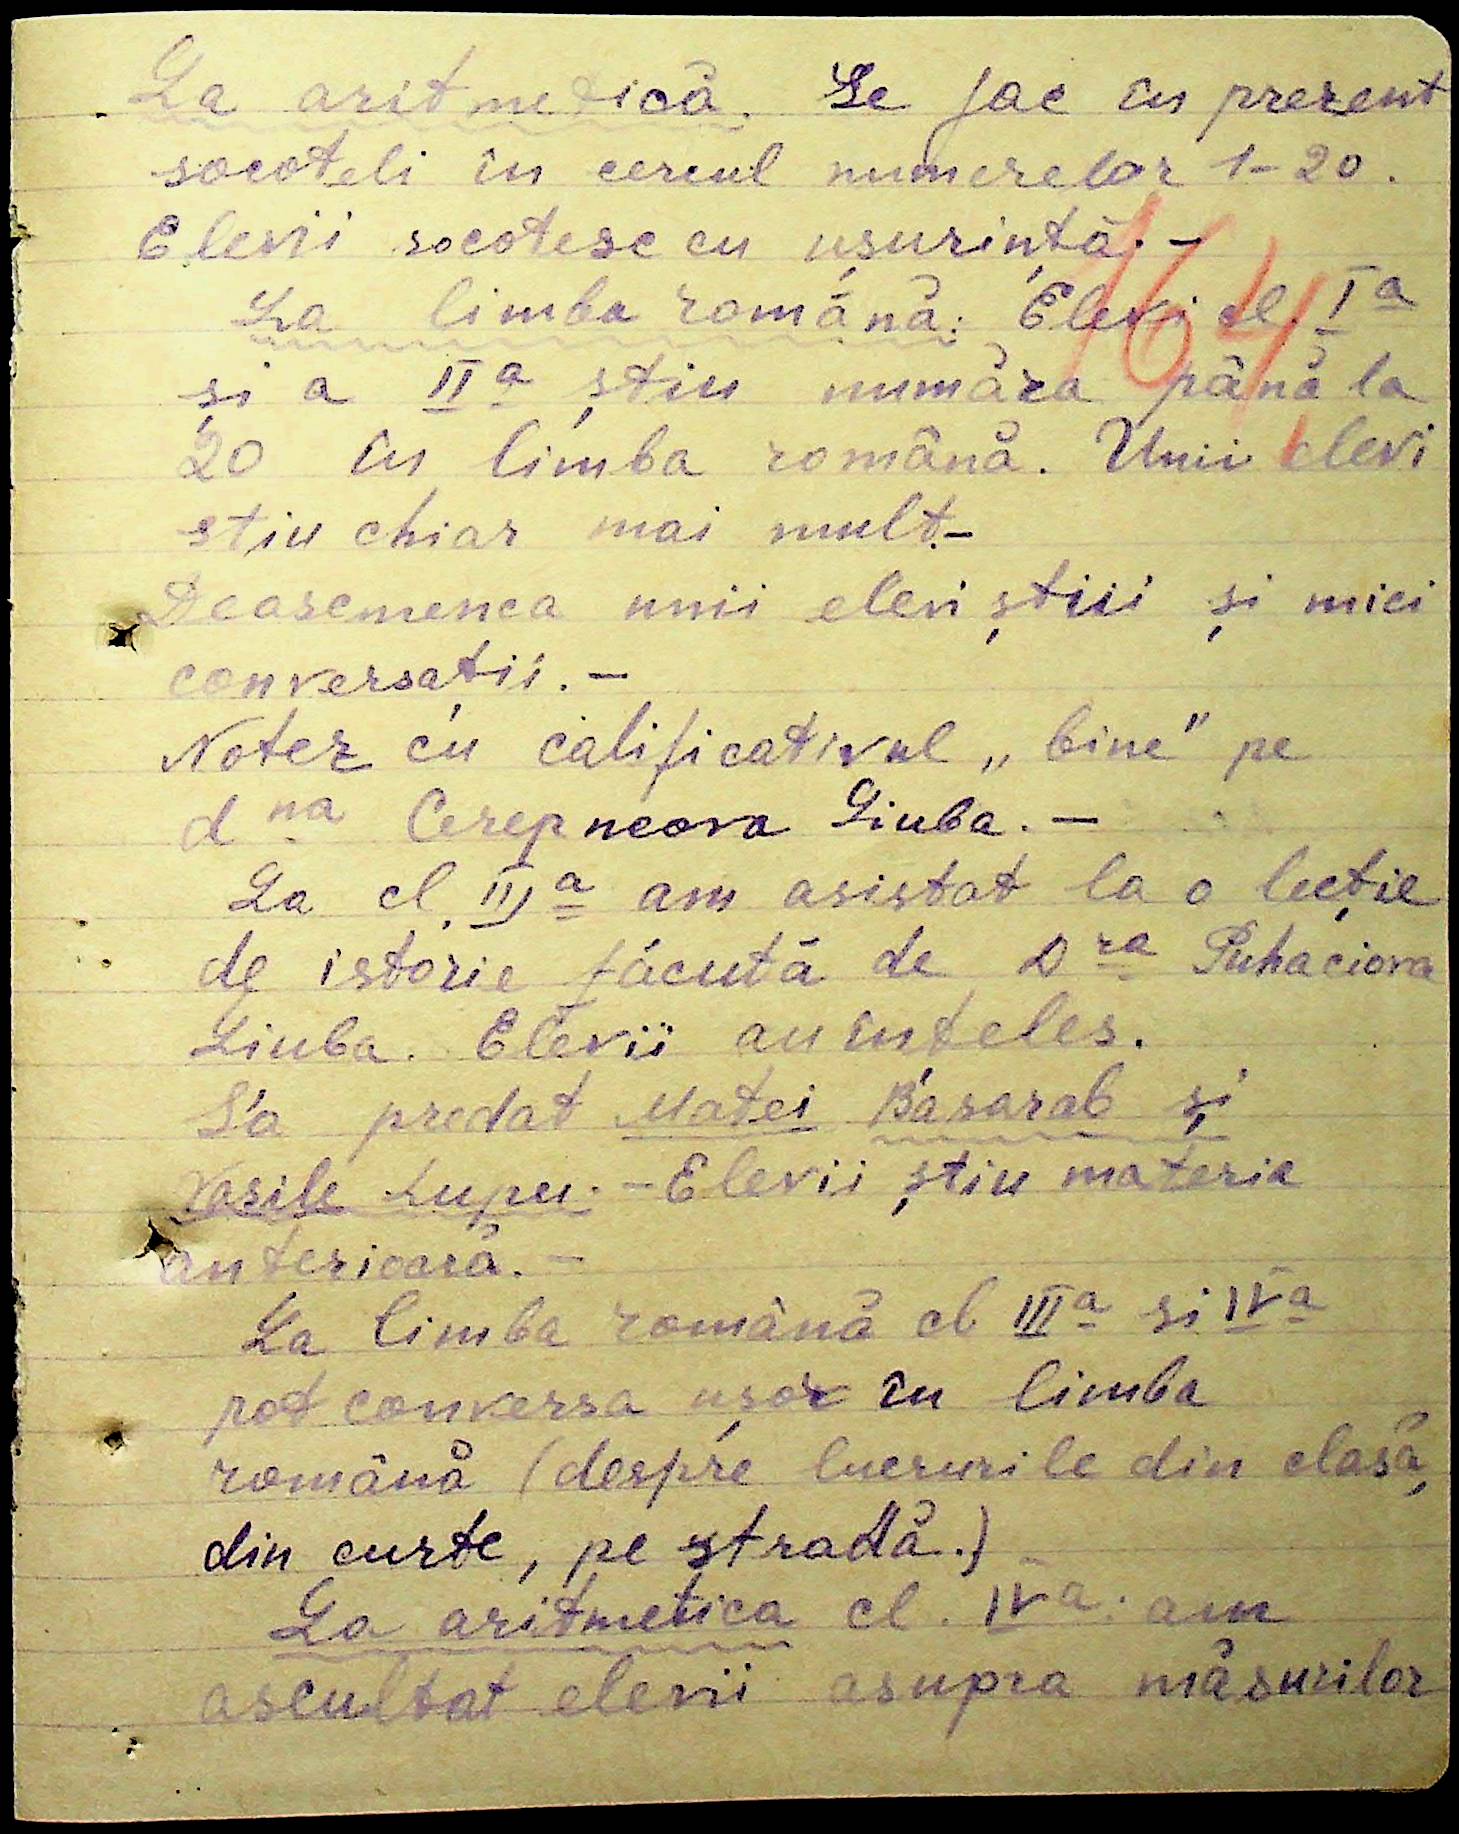 La aritmetică. Se fac în prezent
socoteli în cercul numerelor 1-20.
Elevii socotesc cu ușurință. -
164
La limba română: Elevi cl. Iª
și a IIª știu număra până la
20 în limba română. Unii elevi
stiu chiar mai mult. -
Deasemenea unii elevi știu și mici
conversații. -
Notez cu calificativul „bine" pe
dna Cerepneova Liuba. -
La cl. IVª am asistat la o lecție
de istorie făcută de Dra Puhaciova
Liuba. Elevii au înteles.
S'a predat Matei Băsarab și
Vasile Lupu. - Elevii știu materia
anterioară. -
La limba română cl IIIª si IVª
pot conversa ușor în limba
română (despre lucrurile din clasă,
din curte, pe stradă.)
La aritmetica cl. IVª: am
ascultat elevii asupra măsurilor